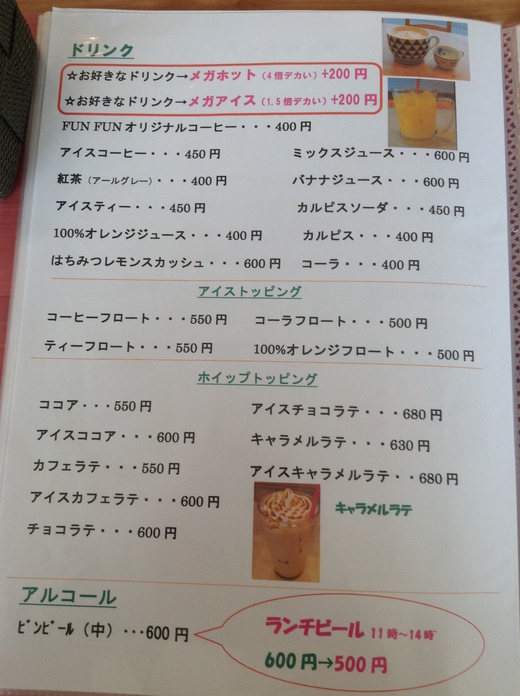 ドリンク
☆お好きなドリンク→メガホット(4倍デカい)+200円
☆お好きなドリンク→メガアイス(1.5倍デカい)+200円
FUN FUNオリジナルコーヒー・・・400円
アイスコーヒー・・・450円
ミックスジュース・・・600円
紅茶(アールグレー)・・・400円
バナナジュース・・・600円
アイスティー・・・450円
カルピスソーダ・・・450円
100%オレンジジュース・・・400円
カルピス・・・400円
はちみつレモンスカッシュ・・・600円
コーラ・・・400円
アイストッピング
コーヒーフロート・・・550円
コーラフロート・・・500円
ティーフロート・・・550円
100%オレンジフロート・・・500円
ホイップトッピング
ココア・・・550円
アイスチョコラテ・・・680円
アイスココア・・・600円
キャラメルラテ・・・630円
カフェラテ・・・550円
アイスキャラメルラテ・・680円
アイスカフェラテ・・・600円
チョコラテ・・・600円
キャラメルラテ
アルコール
ビンビール(中)・・・600円
ランチビール 11時~14時
600円→500円